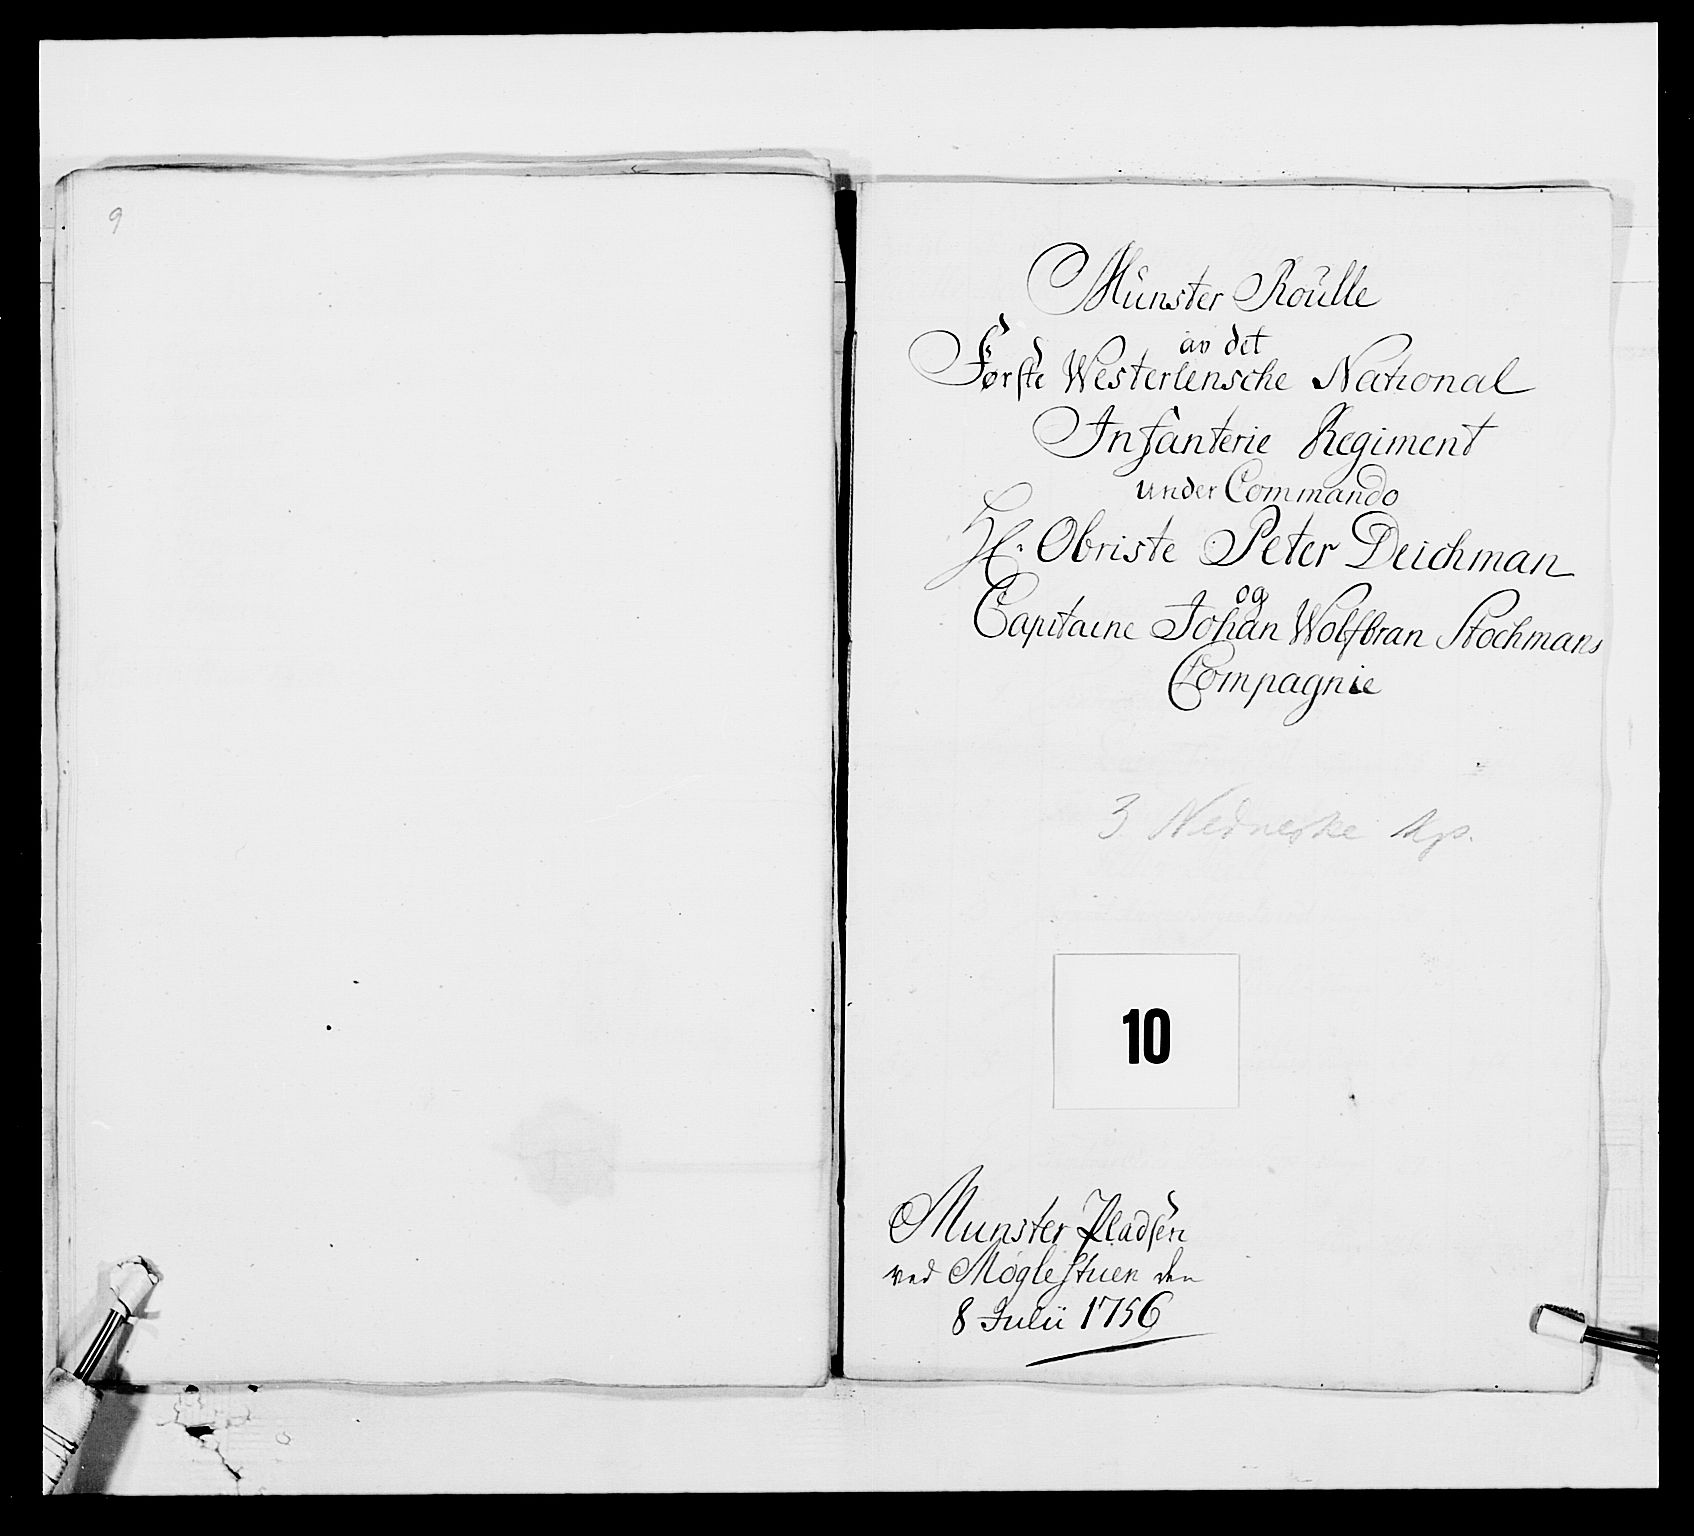 9
Münster Roülle
av det
Første Westerlensche National
Infanterie Regiment
under Commando
Hr. Obriste Peter Deichman
og
Capitaine Johan Wolfbran Stochmans
Compagnie
3 Nedneske Kp.
10
Munster Pladsen
ved Møglestuen den
8 Julii 1756